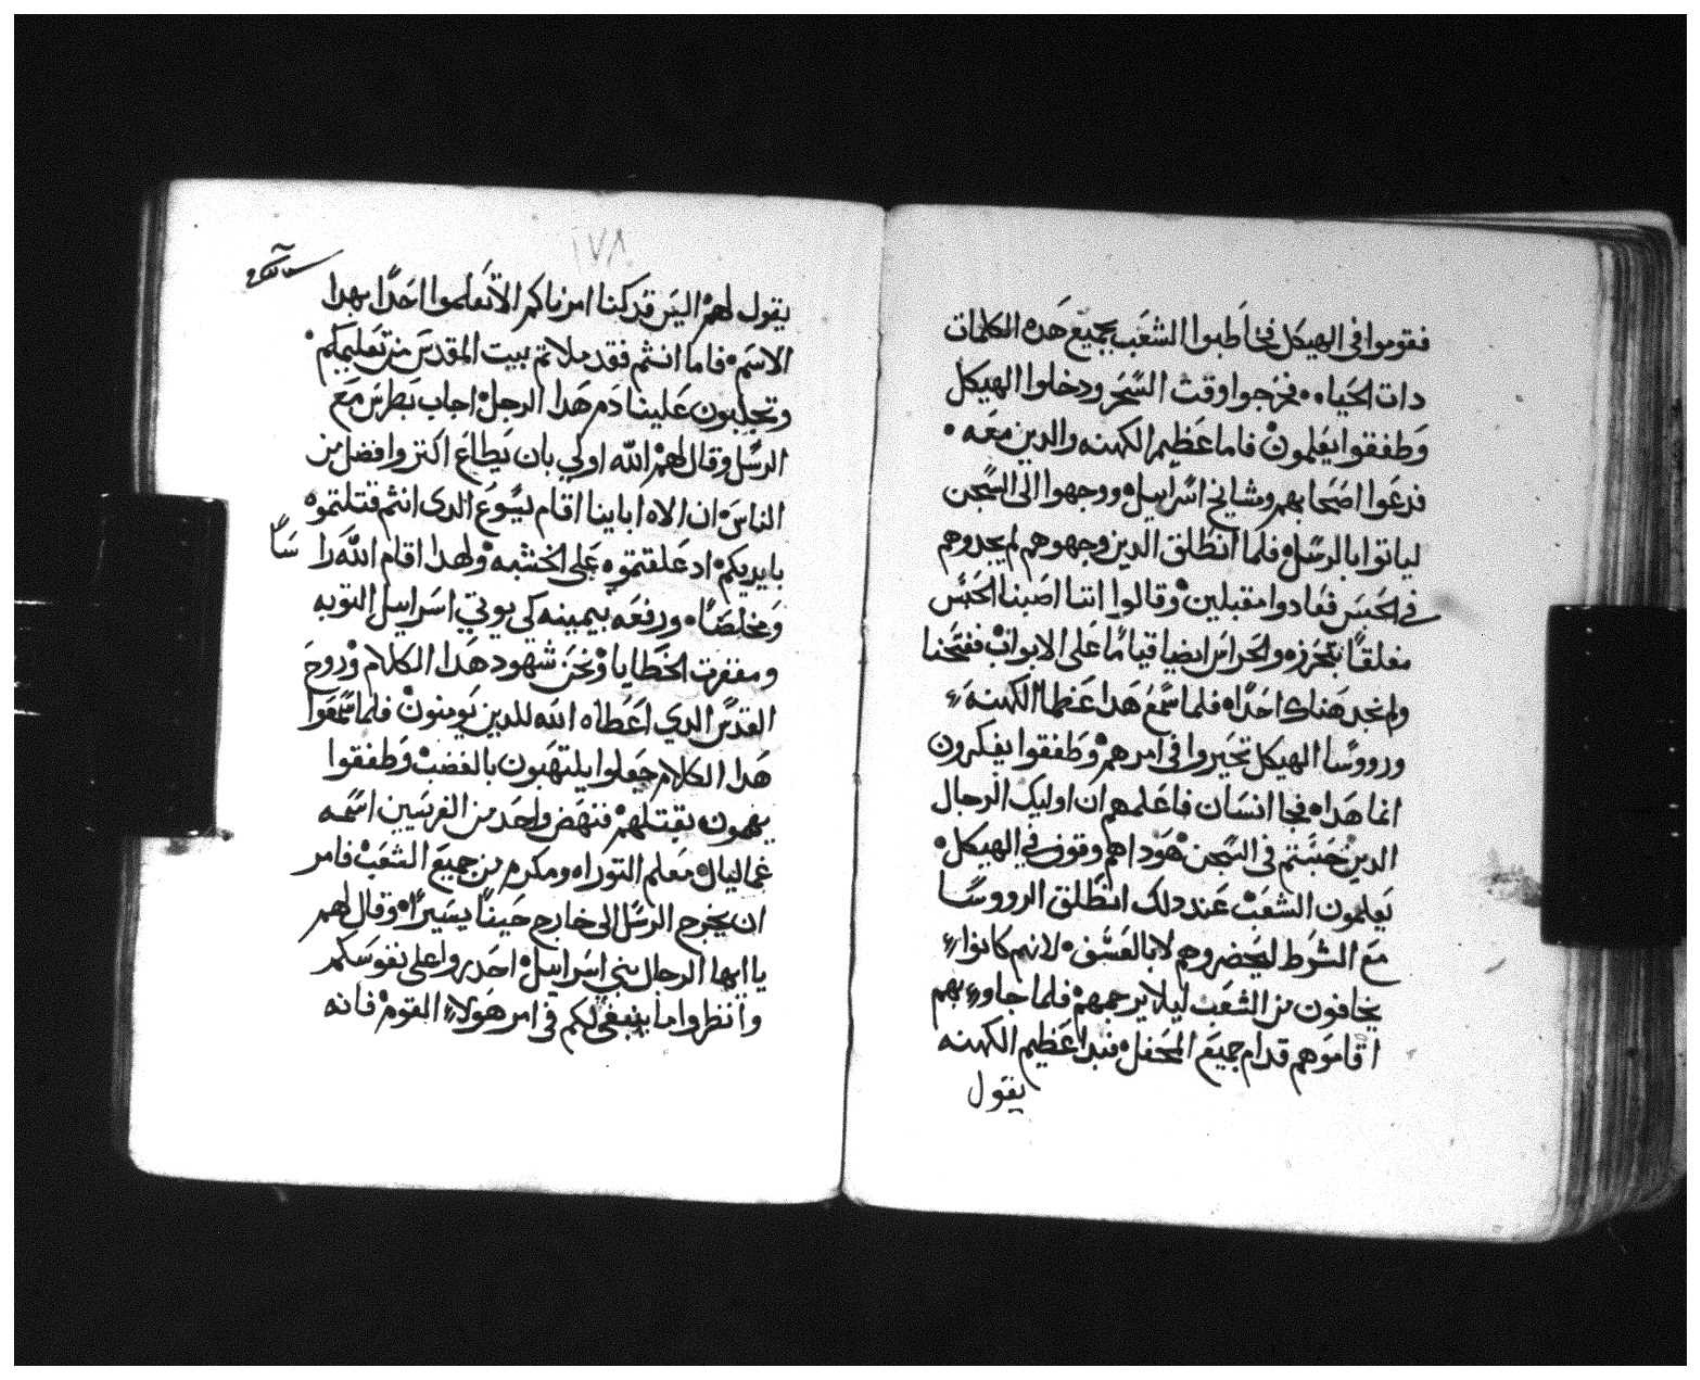 فقوموا في الهيكل فخاطبوا الشعب بجميع هده الكلمات
دات الحياه فخرجوا وقت السحر ودخلوا الهيكل
وطفقوا يعلمون فاما عظيم الكهنه والدين معه
فدعوا اصحابهم ومشايخ اسراييل ووجهوا الى السجن
لياتوا بالرسل فلما انطلق الدين وجهوهم لم يجدوهم
في الحبس فعادوا مقبلين وقالوا اننا اصبنا الحبس
مغلقا بتحرزه والحراس ايضيا قياما على الابواب ففتحنا
ولم نجد هناك احدا فلما سمع هدا عظما الكهنه
ورووسا الهيكل تحيروا في امرهم وطفقوا يفكرون
انما هدا فجا انسان فاعلمهم ان اوليك الرجال
الدين حبستم في السجن هودا هم وقوف في الهيكل
يعلمون الشعب عند دلك انطلق الرووسا
مع الشرط ليحضروهم لا بالعسف لانهم كانوا
يخافون من الشعب ليلا يرجمهم فلما جاوء بهم
اقاموهم قدام جميع المحفل فبدا عظيم الكهنه
يقول
١٧٨
يقول لهم اليس قد كنا امرناكم الا تعلموا احدا بهدا
الاسم فاما انتم فقد ملاتم بيت المقدس من تعليمكم
وتجلبون علينا دم هدا الرجل اجاب بطرس مع
الرسل وقال لهم الله اولي بان يطاع اكتر وافضل من
الناس ان الاه اباينا اقام يسوع الدى انتم قتلتموه
بايديكم اد علقتموه على الخشبه ولهدا اقام الله را سا
ومخلصا ورفعه بيمينه كى يوتي اسراييل التوبه
ومغفرت الخطايا ونحن شهود هدا الكلام وروح
القدس الدي اعطاه الله للدين يومنون فلما سمعوا
هدا الكلام جعلوا يلتهبون بالغضب وطفقوا
يهمون بقتلهم فنهض واحد من الفرسيين اسمه
غماليال معلم التوراه ومكرم من جميع الشعب فامر
ان يخرج الرسل الى خارج حينا يسيرا وقال لهم
يا ايها الرجال بني اسراييل احدروا على نفوسكم
وانظروا ما ينبغي لكم في امر هولاء القوم فانه